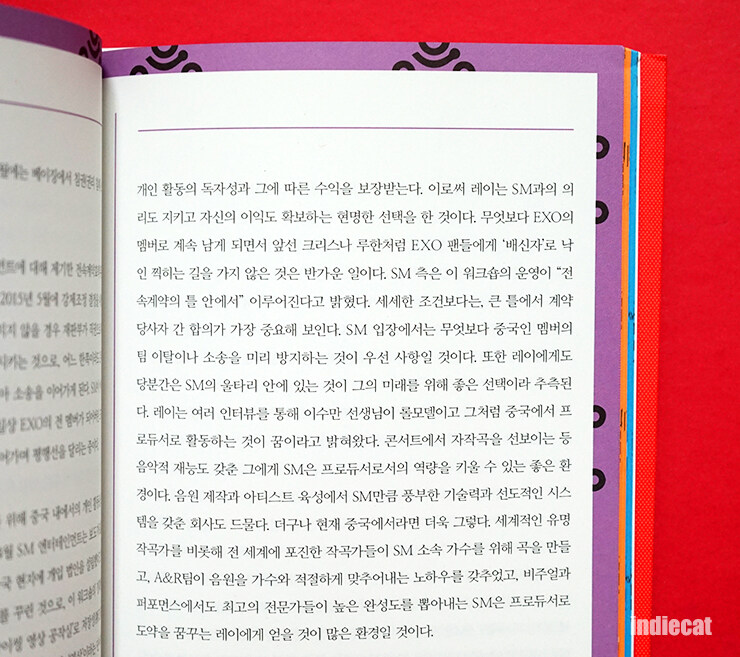 월에는 베이징에서
면트에 대해 제기한 전속계약
2015년 5월에 강제조정
지지 않을 경우 재판부가
지키는 것으로, 어느 한쪽이
소송을 이어가게 된다.
일상 EXO의 전 멤버가
어가며 평행선을 달리는
위해 중국 내에서의 개인
월 SM 엔터테인먼트는
국 현지에 개인 법인을 설립
를 꾸린 것으로, 이 워크숍
개인 활동의 독자성과 그에 따른 수익을 보장받는다. 이로써 레이는 SM과의 의
리도 지키고 자신의 이익도 확보하는 현명한 선택을 한 것이다. 무엇보다 EXO의
멤버로 계속 남게 되면서 앞선 크리스나 루한처럼 EXO 팬들에게 ‘배신자’로 낙
인 찍히는 길을 가지 않은 것은 반가운 일이다. SM 측은 이 워크숍의 운영이 “전
속계약의 틀 안에서” 이루어진다고 밝혔다. 세세한 조건보다는, 큰 틀에서 계약
당사자 간 합의가 가장 중요해 보인다. SM 입장에서는 무엇보다 중국인 멤버의
팀 이탈이나 소송을 미리 방지하는 것이 우선 사항일 것이다. 또한 레이에게도
당분간은 SM의 울타리 안에 있는 것이 그의 미래를 위해 좋은 선택이라 추측된
다. 레이는 여러 인터뷰를 통해 이수만 선생님이 롤모델이고 그처럼 중국에서 프
로듀서로 활동하는 것이 꿈이라고 밝혀왔다. 콘서트에서 자작곡을 선보이는 등
음악적 재능도 갖춘 그에게 SM은 프로듀서로서의 역량을 키울 수 있는 좋은 환
경이다. 음원 제작과 아티스트 육성에서 SM만큼 풍부한 기술력과 선도적인 시스
템을 갖춘 회사도 드물다. 더구나 현재 중국에서라면 더욱 그렇다. 세계적인 유명
작곡가를 비롯해 전 세계에 포진한 작곡가들이 SM 소속 가수를 위해 곡을 만들
고, A&R팀이 음원을 가수와 적절하게 맞추어내는 노하우를 갖추었고, 비주얼과
퍼포먼스에서도 최고의 전문가들이 높은 완성도를 뽑아내는 SM은 프로듀서로
도약을 꿈꾸는 레이에게 얻을 것이 많은 환경일 것이다.
indiecat